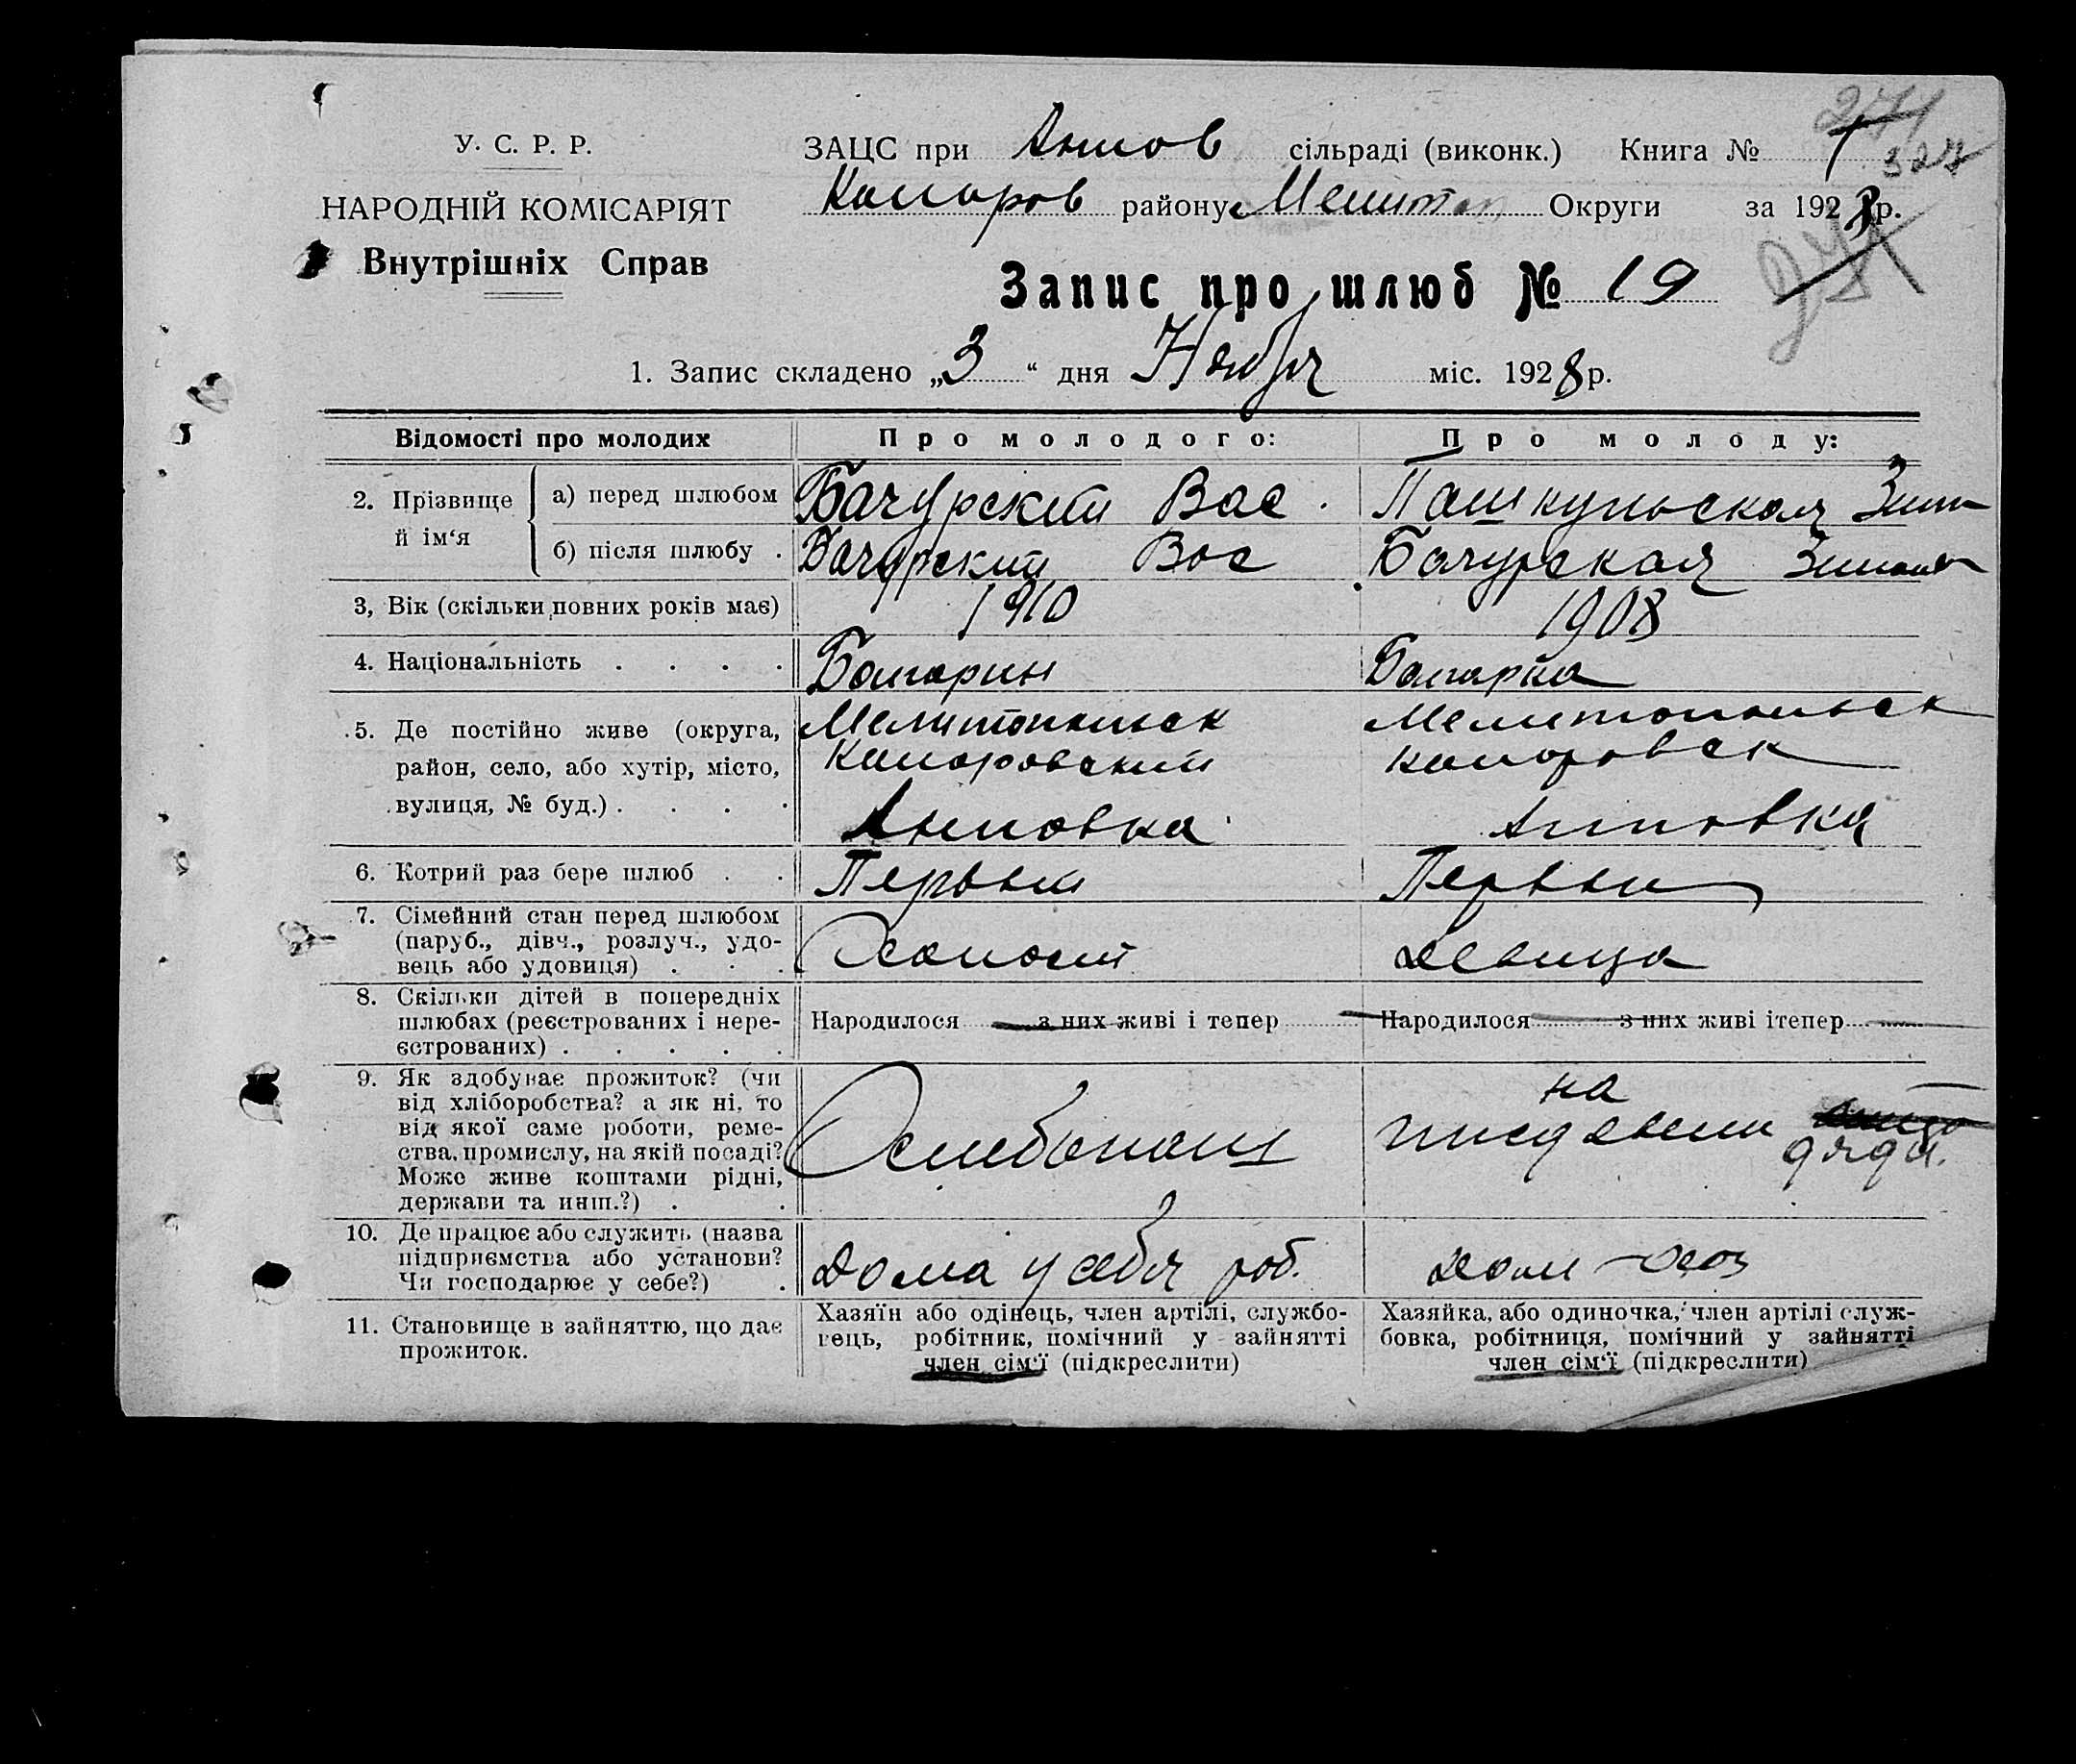 271
У. С. Р. Р.
ЗАЦС при Аннов сільраді (виконк.) Книга № 1 327
НАРОДНІЙ КОМІСАРІЯТ
Коларов району Мелитоп Округи за 1928 р.
Внутрішніх Справ
Запис про шлюб № 19
1. Запис складено „3“ дня Ноября міс. 1928 р.
Відомості про молодих Про молодого: Про молоду:
2. Прізвище й ім‘я а) перед шлюбом Бачурский Вас. Пашкульская Зин
б) після шлюбу . Бачурский Вас Бачурская Зинаи
3, Вік (скільки повних років має) 1910 1908
4. Національність . . . . Болгарин Болгарка
5. Де постійно живе (округа, Мелитопольск Мелитопольск
район, село, або хутір, місто, Коларовский Коларовск
вулиця, № буд.) . . . . Анновка Анновка
6. Котрий раз бере шлюб . . Первый Первый
7. Сімейний стан перед шлюбом
(паруб., дівч., розлуч., удо-
вець або удовиця) . . . Холост Девица
8. Скільки дітей в попередніх
шлюбах (реєстрованих і нере- Народилося з них живі і тепер Народилося з них живі ітепер
єстрованих) . . . . .
9. Як здобуває прожиток? (чи
від хліборобства? а як ні, то на
від якої саме роботи, реме-
ства, промислу, на якій посаді? Хлебопаш дяди.
Може живе коштами рідні,
держави та инш.?) . .
10. Де працює або служить (назва
підприємства або установи? Дома у себя роб.
Чи господарює у себе?) .
11. Становище в зайняттю, що дає
прожиток.
Хазяїн або одінець, член артілі, службо-
вець, робітник, помічний у зайнятті
член сім‘ї (підкреслити)
Хазяйка, або одиночка, член артілі служ-
бовка, робітниця, помічний у зайнятті
член сім‘ї (підкреслити)